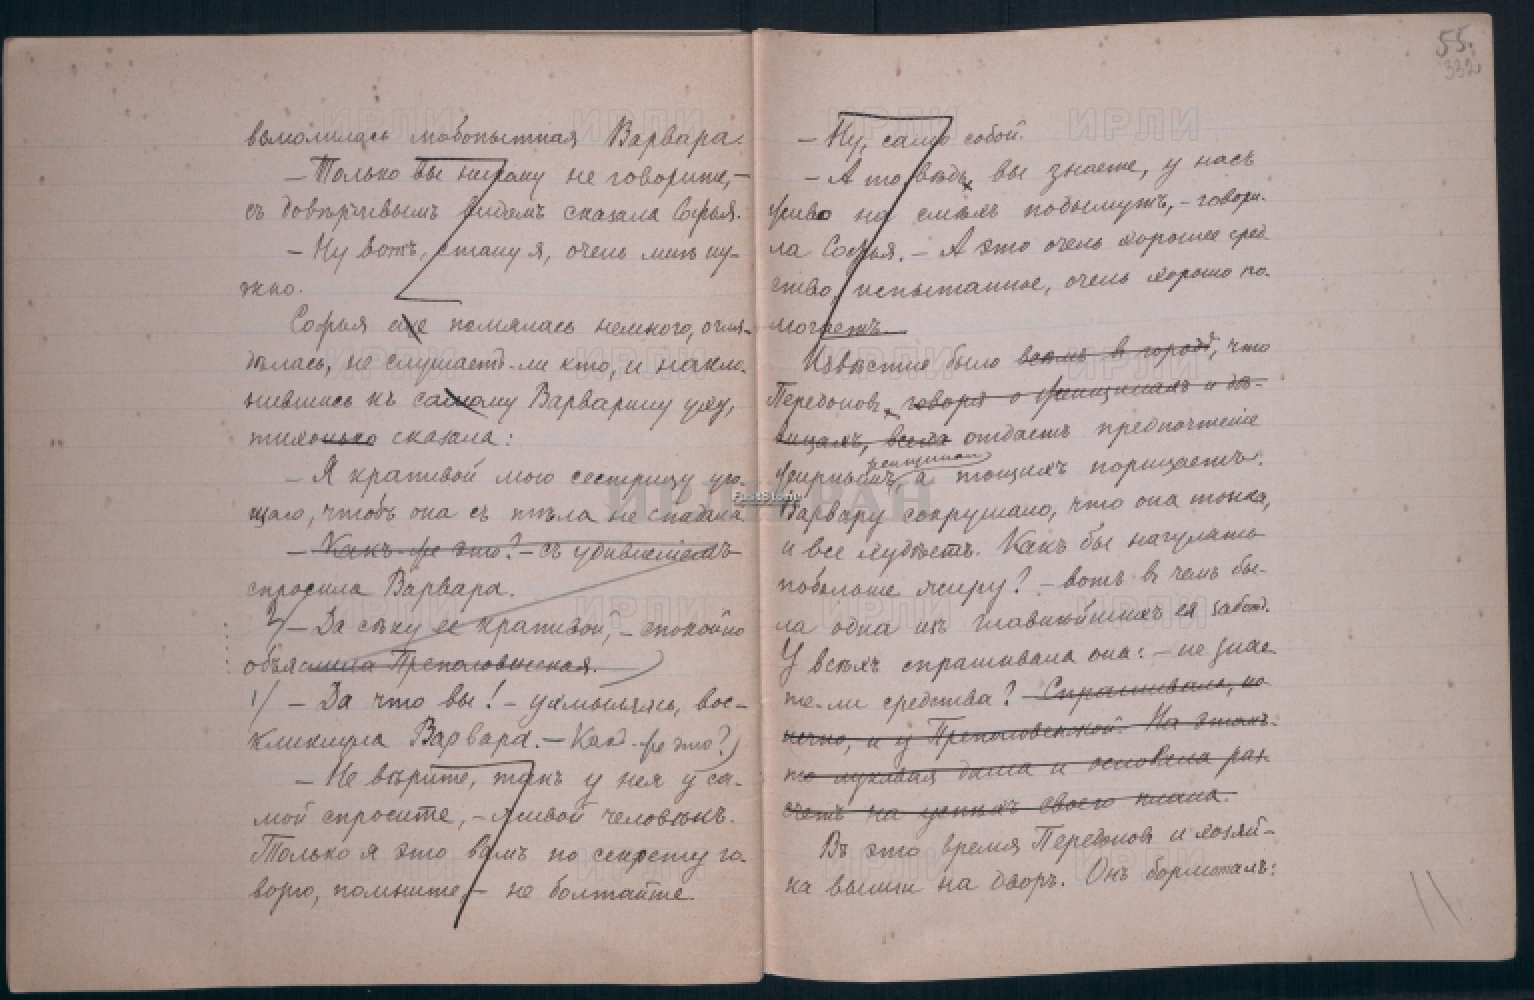 взмолилась любопытная Варвара.
— Только вы никому не говорите, —
съ довѣрчивымъ видомъ сказала Софья.
— Ну вотъ, стану я, очень мнѣ ну-
жно.
Софья еще помялась немного, огля-
дѣлась, не слушаетъ-ли кто, и накло-
нившись къ самому Варварину уху,
тихонько сказала:
— Я крапивой мою сестрицу уго-
щаю, чтобъ она съ тѣла не спадала
— Какъ же это? — съ удивленіемъ
спросила Варвара.
2/ — Да сѣку ее крапивой, — спокойно
объяснила Преполовенская.
1/ — Да что вы! — ухмыляясь, вос-
кликнула Варвара. — Какъ же это?)
— Не вѣрите, такъ у нея у са-
мой спросите, — живой человѣкъ.
Только я это вамъ по секрету го-
ворю, помните, — не болтайте.
55.
332
— Ну, само собой.
— А то вѣдь, вы знаете, у насъ
живо на смѣхъ подымутъ, — говори-
ла Софья. — А это очень хорошее сред-
ство, испытанное, очень хорошо по-
могаетъ.
Извѣстно было всемъ въ городѣ, что
Передоновъ, говоря о женщинахъ и дѣ-
вицахъ, всегда отдаетъ предпочтеніе
женщинам
жирнымъ а тощихъ порицаетъ.
Варвару сокрушало, что она тонка,
и все худѣетъ. Какъ бы нагулять
побольше жиру? — вотъ въ чемъ бы-
ла одна изъ главнѣйшихъ ея заботъ.
У всѣхъ спрашивала она: — не знае-
те-ли средства? Спрашивала, ко-
нечно, и у Преполовенской. На этомъ-
то лукавая дама и основала раз-
счетъ на успѣхъ своего плана.
Въ это время Передоновъ и хозяй-
ка вышли на дворъ. Онъ бормоталъ:
ИРЛИ РАН
FastStone
ИРЛИ ИРЛИ ИРЛИ ИРЛИ
ИРЛИ ИРЛИ ИРЛИ ИРЛИ
ИРЛИ ИРЛИ ИРЛИ ИРЛИ
ИРЛИ ИРЛИ ИРЛИ ИРЛИ